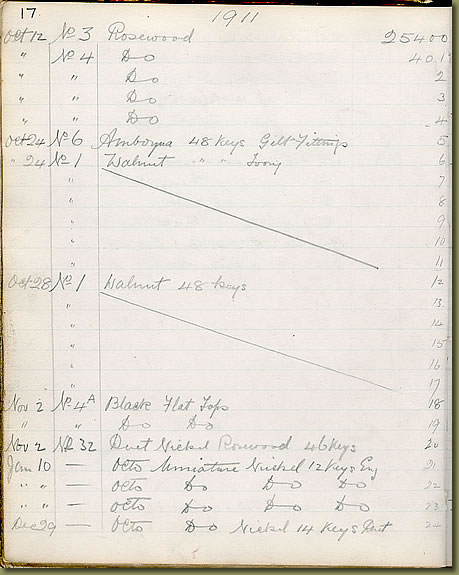 17 1911
Oct 12 No 3 Rosewood 25400
" No 4 Do 401
" " Do 2
" " Do 3
" " Do 4
Oct 24 No 6 Amboyna 48 Keys Gilt Fittings 5
" 24 No 1 Walnut " " Ivory 6
" 7
" 8
" 9
" 10
" 11
Oct 28 No 1 Walnut 48 Keys 12
" 13
" 14
" 15
" 16
" 17
Nov 2 No 4A Black Flat Tops 18
" " Do Do 19
Nov 2 No 32 Duet Nickel Rosewood 46 Keys 20
Jan 10 — Octo Miniature Nickel 12 Keys Eng 21
" " — Octo Do Do Do 22
" " — Octo Do Do Do 23
Dec 29 — Octo Do Nickel 14 Keys 24